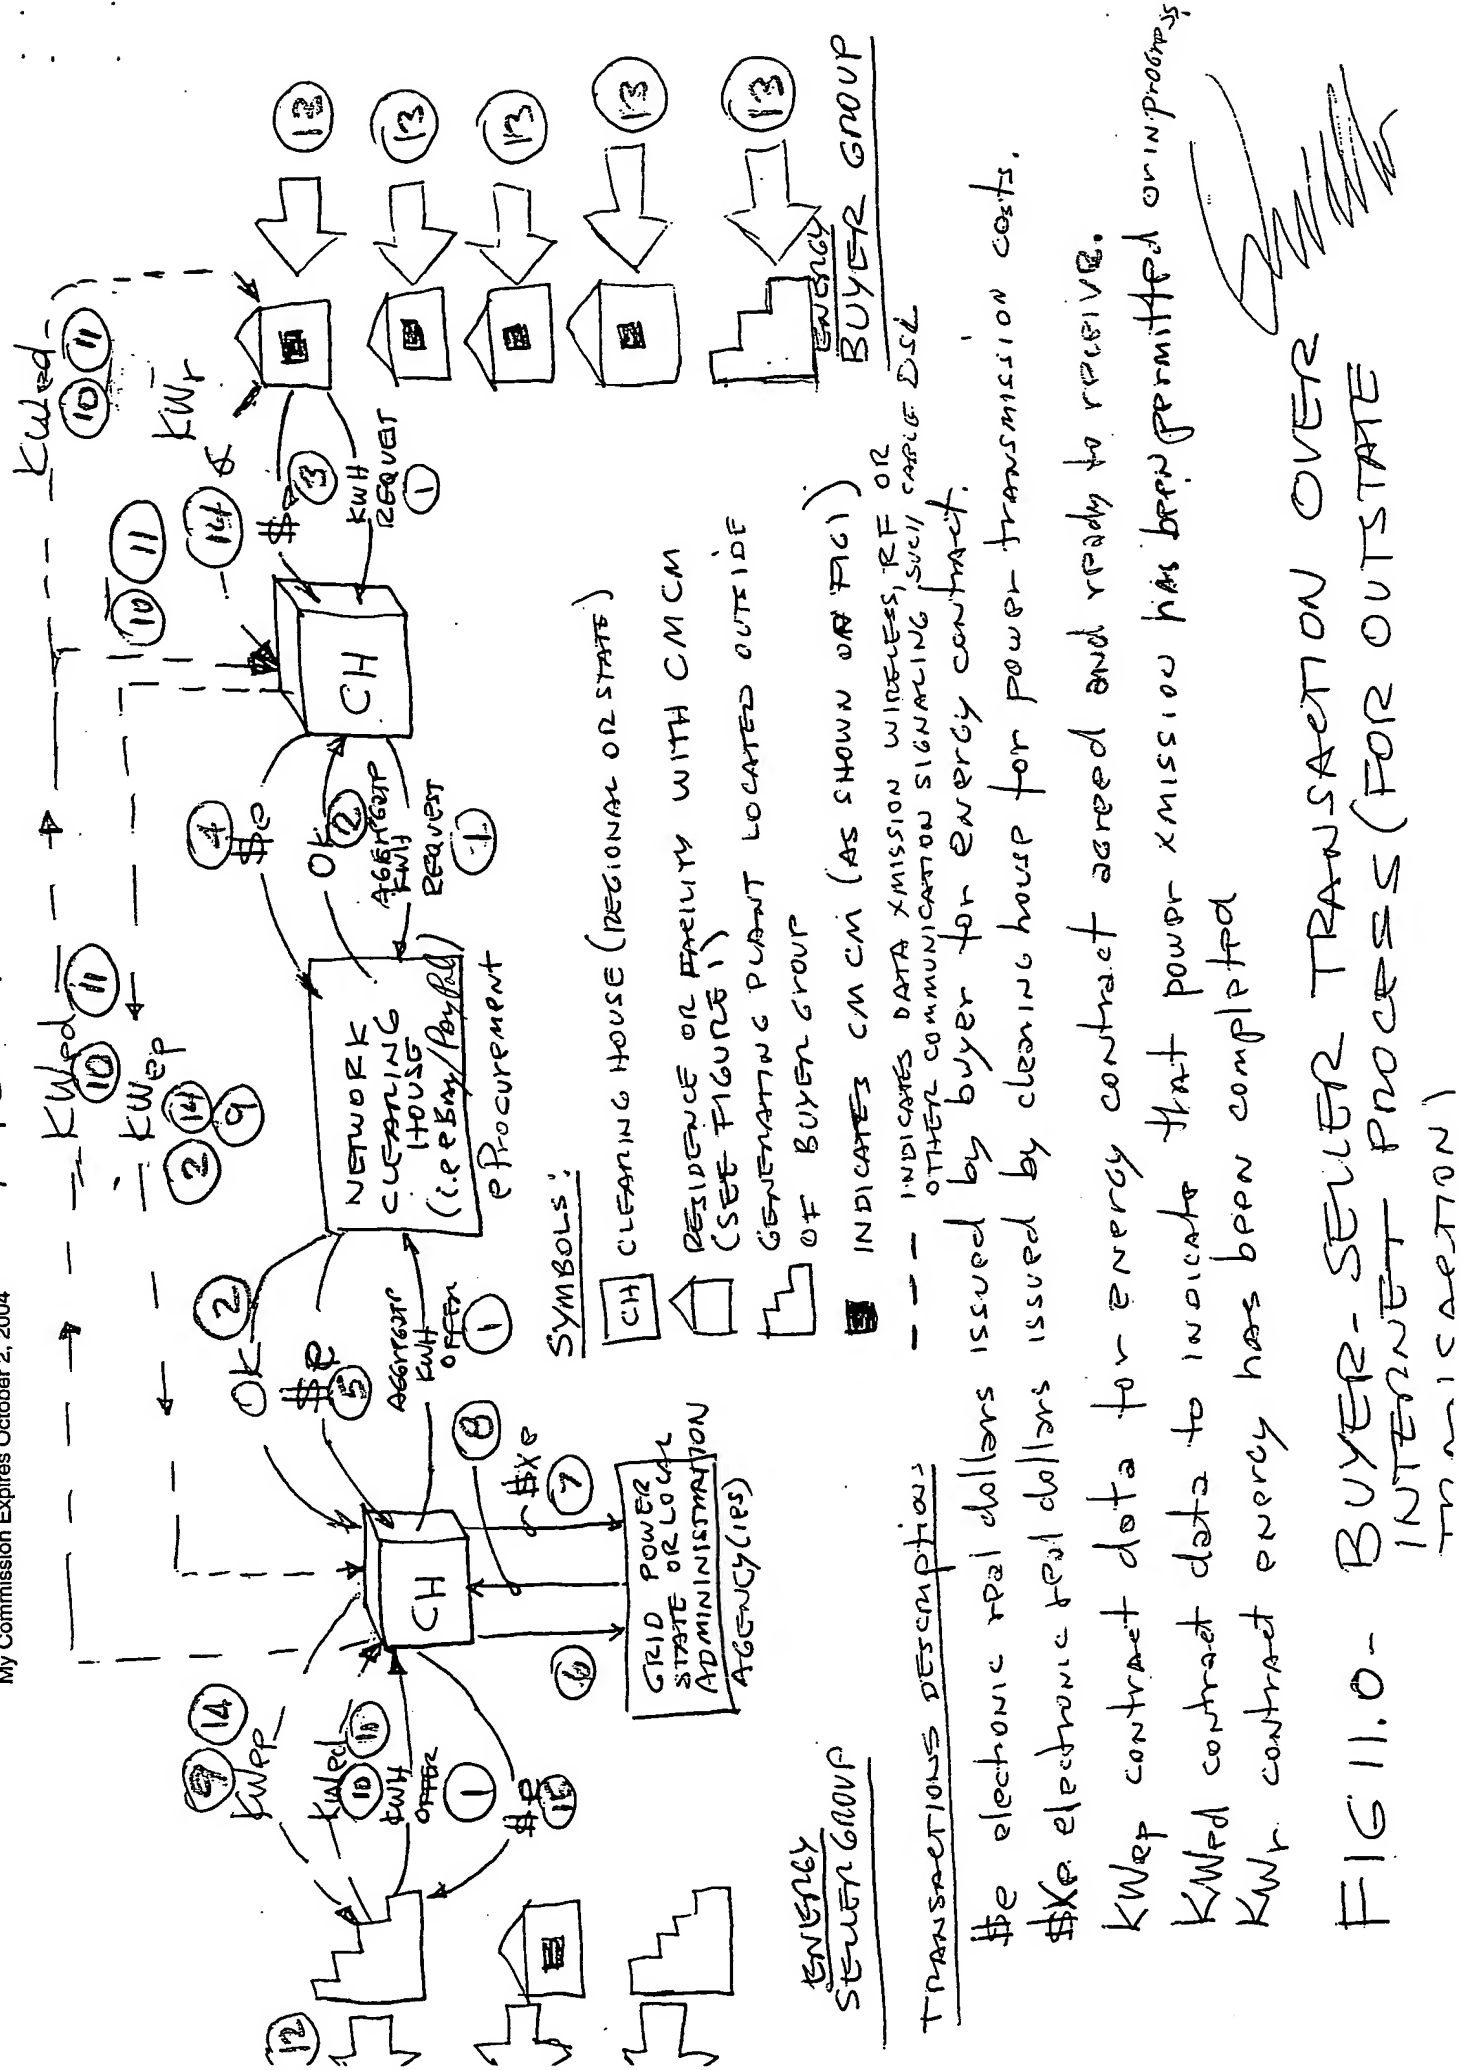 My Commission Expires October 2, 2004
KWed
10 11
KWep
2 14 9
KWed
10 11
KWr
10 11
14
9 14
KWep
KWed
10 11
KWH
OFFER
1
$e
15
12
CH
OK
2
$e
5
AGGREGATE
KWH
OFFER
1
8
$Xe
7
6
GRID POWER
STATE OR LOCAL
ADMININISTRATION
AGENCY(IES)
NETWORK
CLEARING
HOUSE
(i.e eBay/PayPal)
eProcurement
4
$e
OK
2
AGGREGATE
KWH
REQUEST
1
CH
$e
3
KWH
REQUEST
1
13
13
13
13
13
ENERGY
BUYER GROUP
ENERGY
SELLER GROUP
SYMBOLS:
CH CLEARING HOUSE (REGIONAL OR STATE)
RESIDENCE OR FACILITY WITH CMCM
(SEE FIGURE 1)
GENERATING PLANT LOCATED OUTSIDE
OF BUYER GROUP
INDICATES CMCM (AS SHOWN ON FIG1)
INDICATES DATA XMISSION WIRELESS, RF OR
OTHER COMMUNICATION SIGNALING SUCH CABLE DSL
TRANSACTIONS DESCRIPTIONS
$e electronic real dollars issued by buyer for energy contract.
$Xe electronic real dollars issued by clearing house for power transmission costs.
KWep contract data for energy contract agreed and ready to receive.
KWed contract data to indicate that power xmission has been permitted or in progress.
KWr contract energy has been completed
FIG 11.0- BUYER-SELLER TRANSACTION OVER
INTERNET PROCESS (FOR OUTSTATE